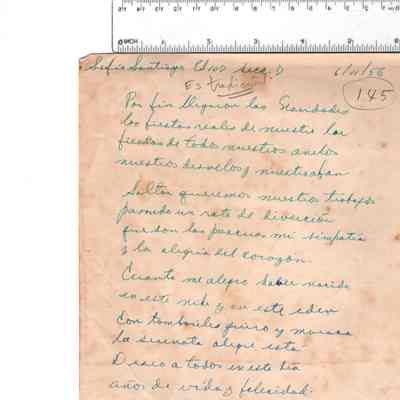 Sofía Santiago Ed 100 Secc. D 6/11/56
Es tradición
145
Por fin llegaron las Navidades
las fiestas reales de nuestro lar
fiestas de todos nuestros anelos
nuestros desvelos y nuestro afan
Soltar queremos nuestros trabajos
pasando un rato de diversión
que son las pascuas mi simpatía
y la alegría del corazón.
Cuanto me alegro haber nacido
en este nido y en este eden
Con tamboriles guiro y maraca
La serenata alegre está
Deseo a todos en este día
años de vida y felicidad.